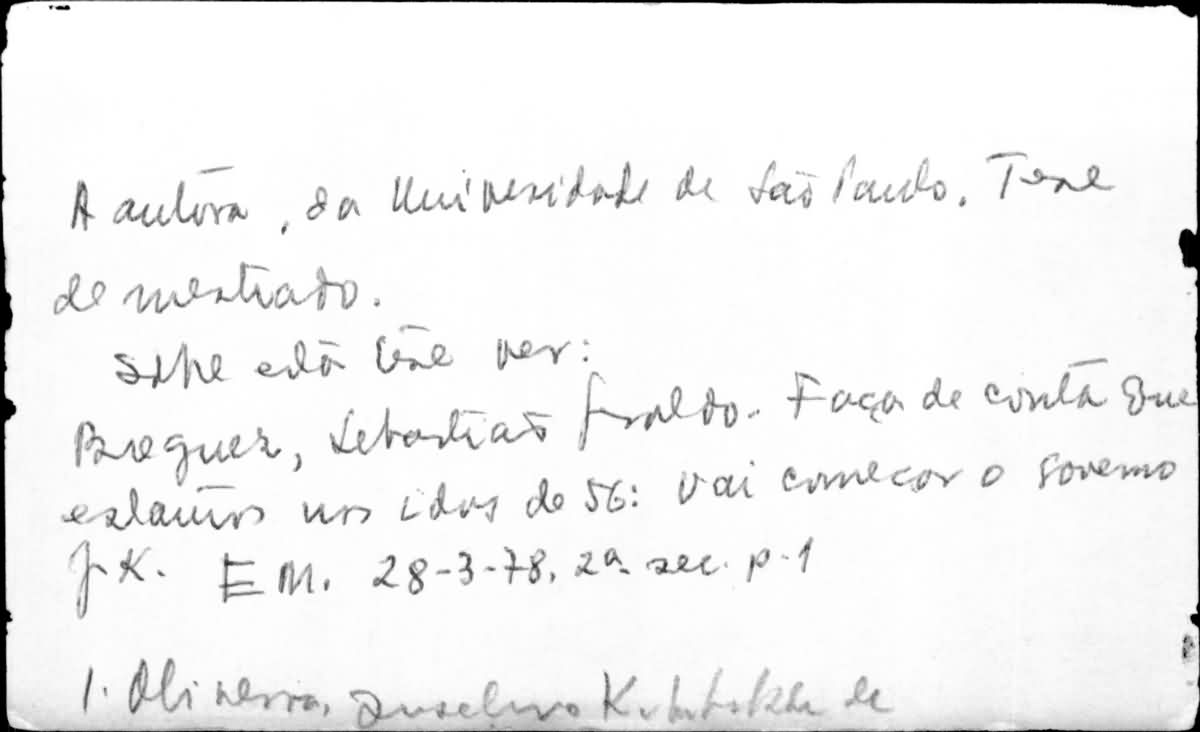 A autora, da Universidade de São Paulo. Tese
de mestrado.
Sobre esta tese ver:
Breguez, Sebastião Geraldo. Faça de conta que
estamos nos idos de 56: vai começar o governo
J.K. EM. 28-3-78, 2a. sec. p.1
1. Oliveira, Juscelino Kubitschek de